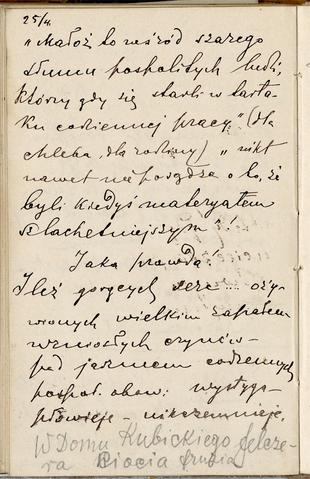 25/4.
"Małoż to wśród szarego
tłumu pospolitych ludzi,
którzy gdy się starli w tarta-
ku codziennej pracy" (dla
chleba, dla rodziny) "nikt
nawet nie posądza o to, że
byli kiedyś materyałem
szlachetniejszym"!
Jaka prawda!
Ileż gorących serc ... oży-
wionych wielkim zapałem
wzniosłych czynów -
pod jarzmem codziennych
pospol. obow: wystyga -
płowieje - nikczemnieje.
W Domu Kubickiego felcze-
ra Ciocia